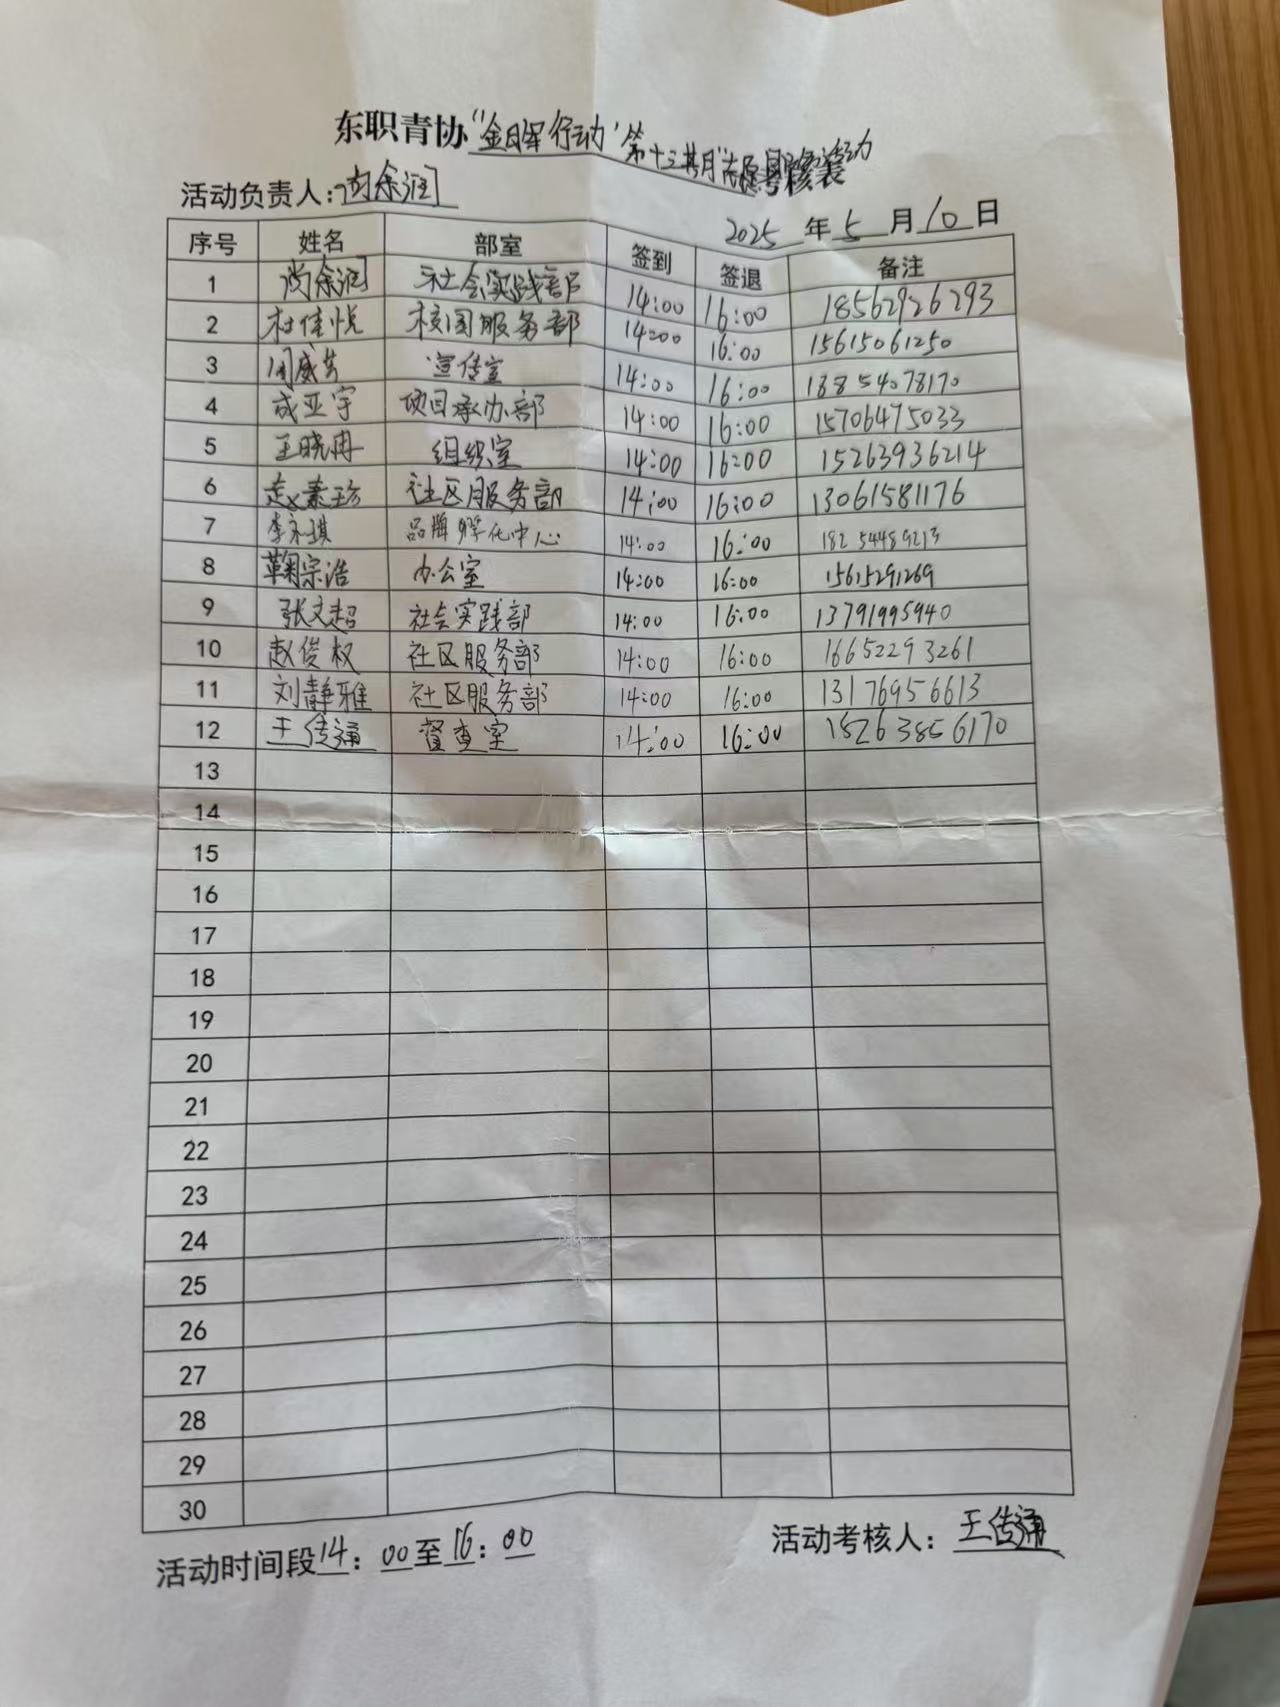 东职青协“金晖行动”第十三期”志愿服务活动考核表
活动负责人:尚余润
2025 年 5 月 10 日
序号 姓名 部室 签到 签退 备注
1 尚余润 社会实践部 14:00 16:00 18562926293
2 杜佳悦 校园服务部 14:00 16:00 15615061250
3 宣传室 14:00 16:00 13854078170
4 成亚宇 项目承办部 14:00 16:00 15706475033
5 王晓冉 组织室 14:00 16:00 15263936214
6 孟素珍 社区服务部 14:00 16:00 13061581176
7 李永琪 品牌孵化中心 14:00 16:00 18254489213
8 鞠宗浩 办公室 14:00 16:00 15615291269
9 张文超 社会实践部 14:00 16:00 13791995940
10 赵俊权 社区服务部 14:00 16:00 16652293261
11 刘静雅 社区服务部 14:00 16:00 13176956613
12 王传通 督查室 14:00 16:00 15263856170
13
14
15
16
17
18
19
20
21
22
23
24
25
26
27
28
29
30
活动时间段14:00至16:00
活动考核人:王传通